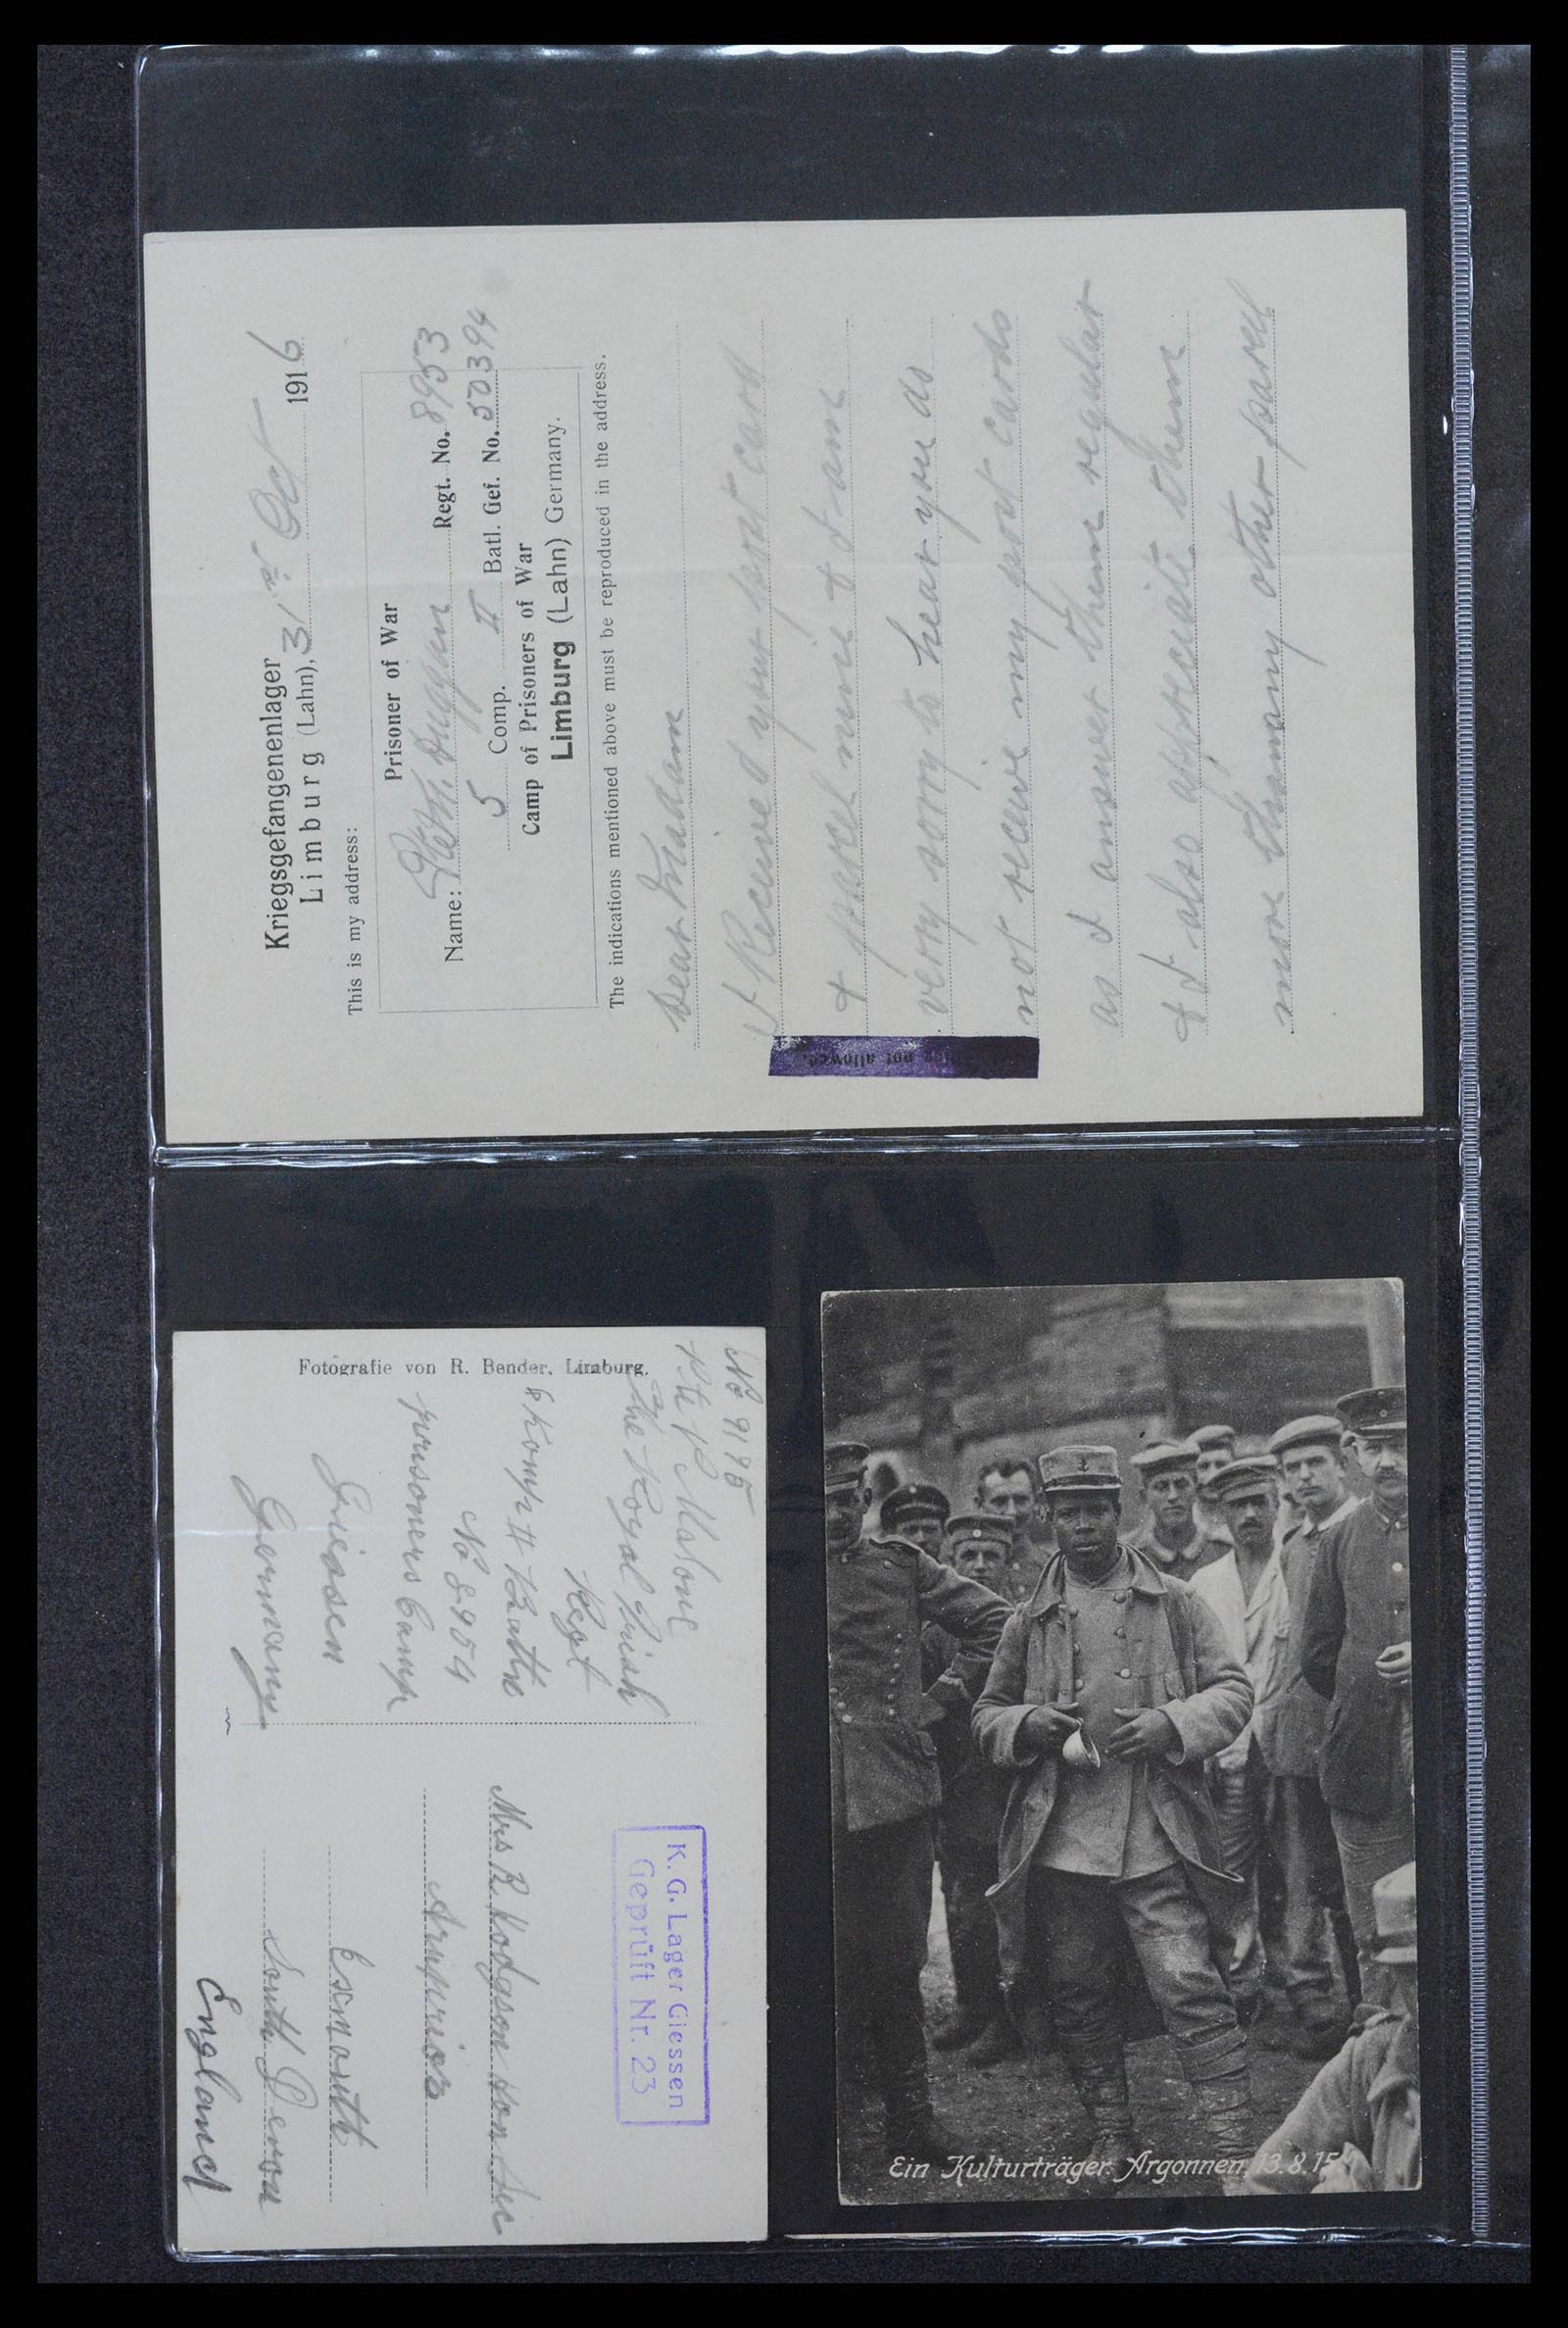 Kriegsgefangenenlager
Limburg (Lahn), 31st Oct 1916
This is my address:
Prisoner of War
Name: Duggan Regt. No. 8953
5 Comp. II Batl. Gef. No. 50394
Camp of Prisoners of War
Limburg (Lahn) Germany.
The indications mentioned above must be reproduced in the address.
Dear Madam
I Received your post card
& parcel mine & I am
very sorry to hear you do
not receive my post cards
as I answer them regular
& I also appreciate them
more than any other parcel
not allowed.
Fotografie von R. Bender, Limburg.
No 9195
Pte P Malone
The Royal Irish
Regt
8 Komp II Battn
No 8954
prisoners Camp
Giessen
Germany
K. G. Lager Giessen
Geprüft Nr. 23
Mrs R Hodgson Hon Sec
Exmouth
South Devon
England
Ein Kulturträger. Argonnen, 13.8.15